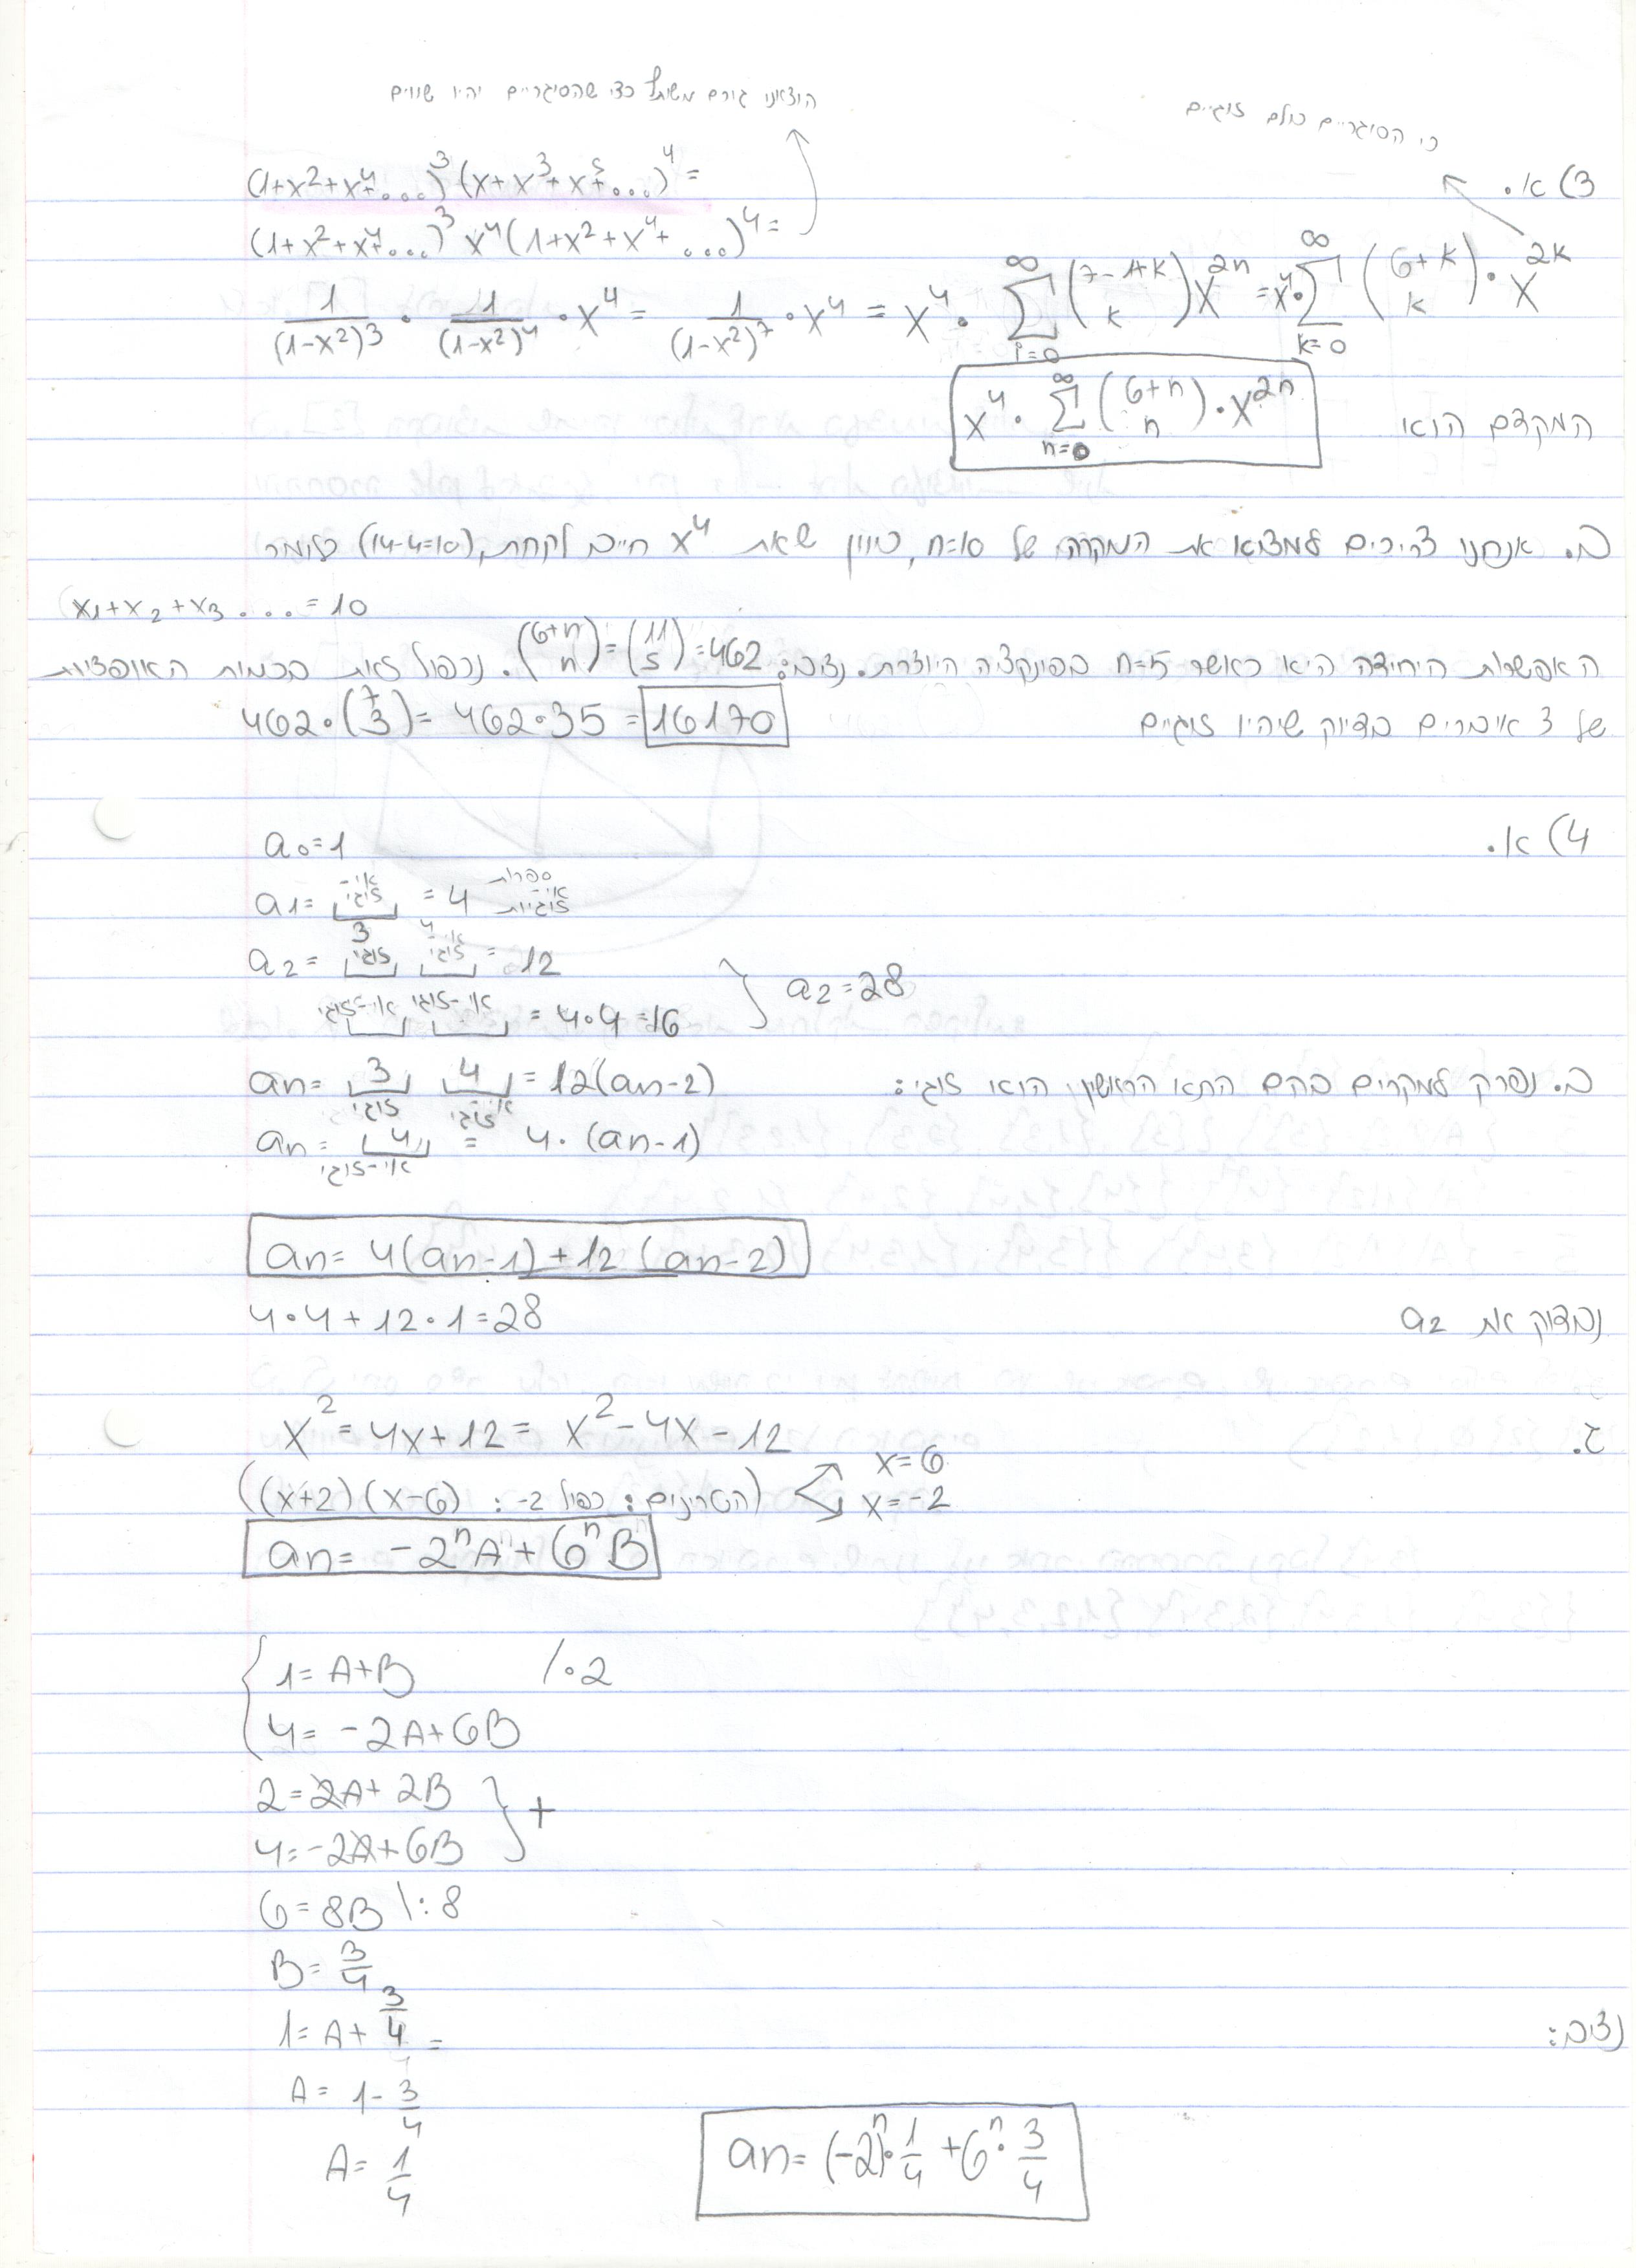 הוצאנו גורם משותף כדי שהסיגריים יהיו שווים
כי הסיגריים כולם זוגיים
3) א.
(1+x²+x⁴+...)³ (x+x³+x⁵+...)⁴ =
(1+x²+x⁴+...)³ x⁴ (1+x²+x⁴+...)⁴ =
1/(1-x²)³ · 1/(1-x²)⁴ · x⁴ = 1/(1-x²)⁷ · x⁴ = x⁴ · ∑_{i=0}^{∞} (7-1+k / k) x²ⁿ = x⁴ · ∑_{k=0}^{∞} (6+k / k) · x²ᵏ
המקדם הוא x⁴ · ∑_{n=0}^{∞} (6+n / n) · x²ⁿ
ב. אנחנו צריכים למצוא את המקרה של n=10, כיוון שאת x⁴ חייב לקחת, (14-4=10) כלומר
x₁+x₂+x₃....=10
האפשרות היחידה היא כאשר n=5 בפונקציה היוצרת. נציב: (6+n / n) = (11 / 5) = 462. נכפול זאת בכמות האופציות
של 3 איברים בדיוק שיהיו זוגיים 462·(7 / 3) = 462·35 = 16170
4) א.
a₀=1
a₁= אי-זוגי = 4 ספרות אי-זוגיות
a₂= 3 זוגי 4 אי-זוגי = 12
אי-זוגי אי-זוגי = 4·4=16 } a₂=28
ב. נפרק למקרים בהם התא הראשון הוא זוגי:
an= 3 זוגי 4 אי-זוגי = 12(an-2)
an= 4 אי-זוגי = 4·(an-1)
an= 4(an-1)+12(an-2)
נבדוק את a₂ 4·4+12·1=28
ג.
x² = 4x+12 = x²-4x-12
((x+2)(x-6) : -2 כפול : הטרינום) x=6
x=-2
an= -2ⁿA+6ⁿB
1= A+B /·2
4= -2A+6B
2=2A+2B
4=-2A+6B } +
6=8B \:8
B= 3/4
נציב:
1= A+ 3/4 =
A= 1- 3/4
A= 1/4
an= (-2)ⁿ· 1/4 +6ⁿ· 3/4